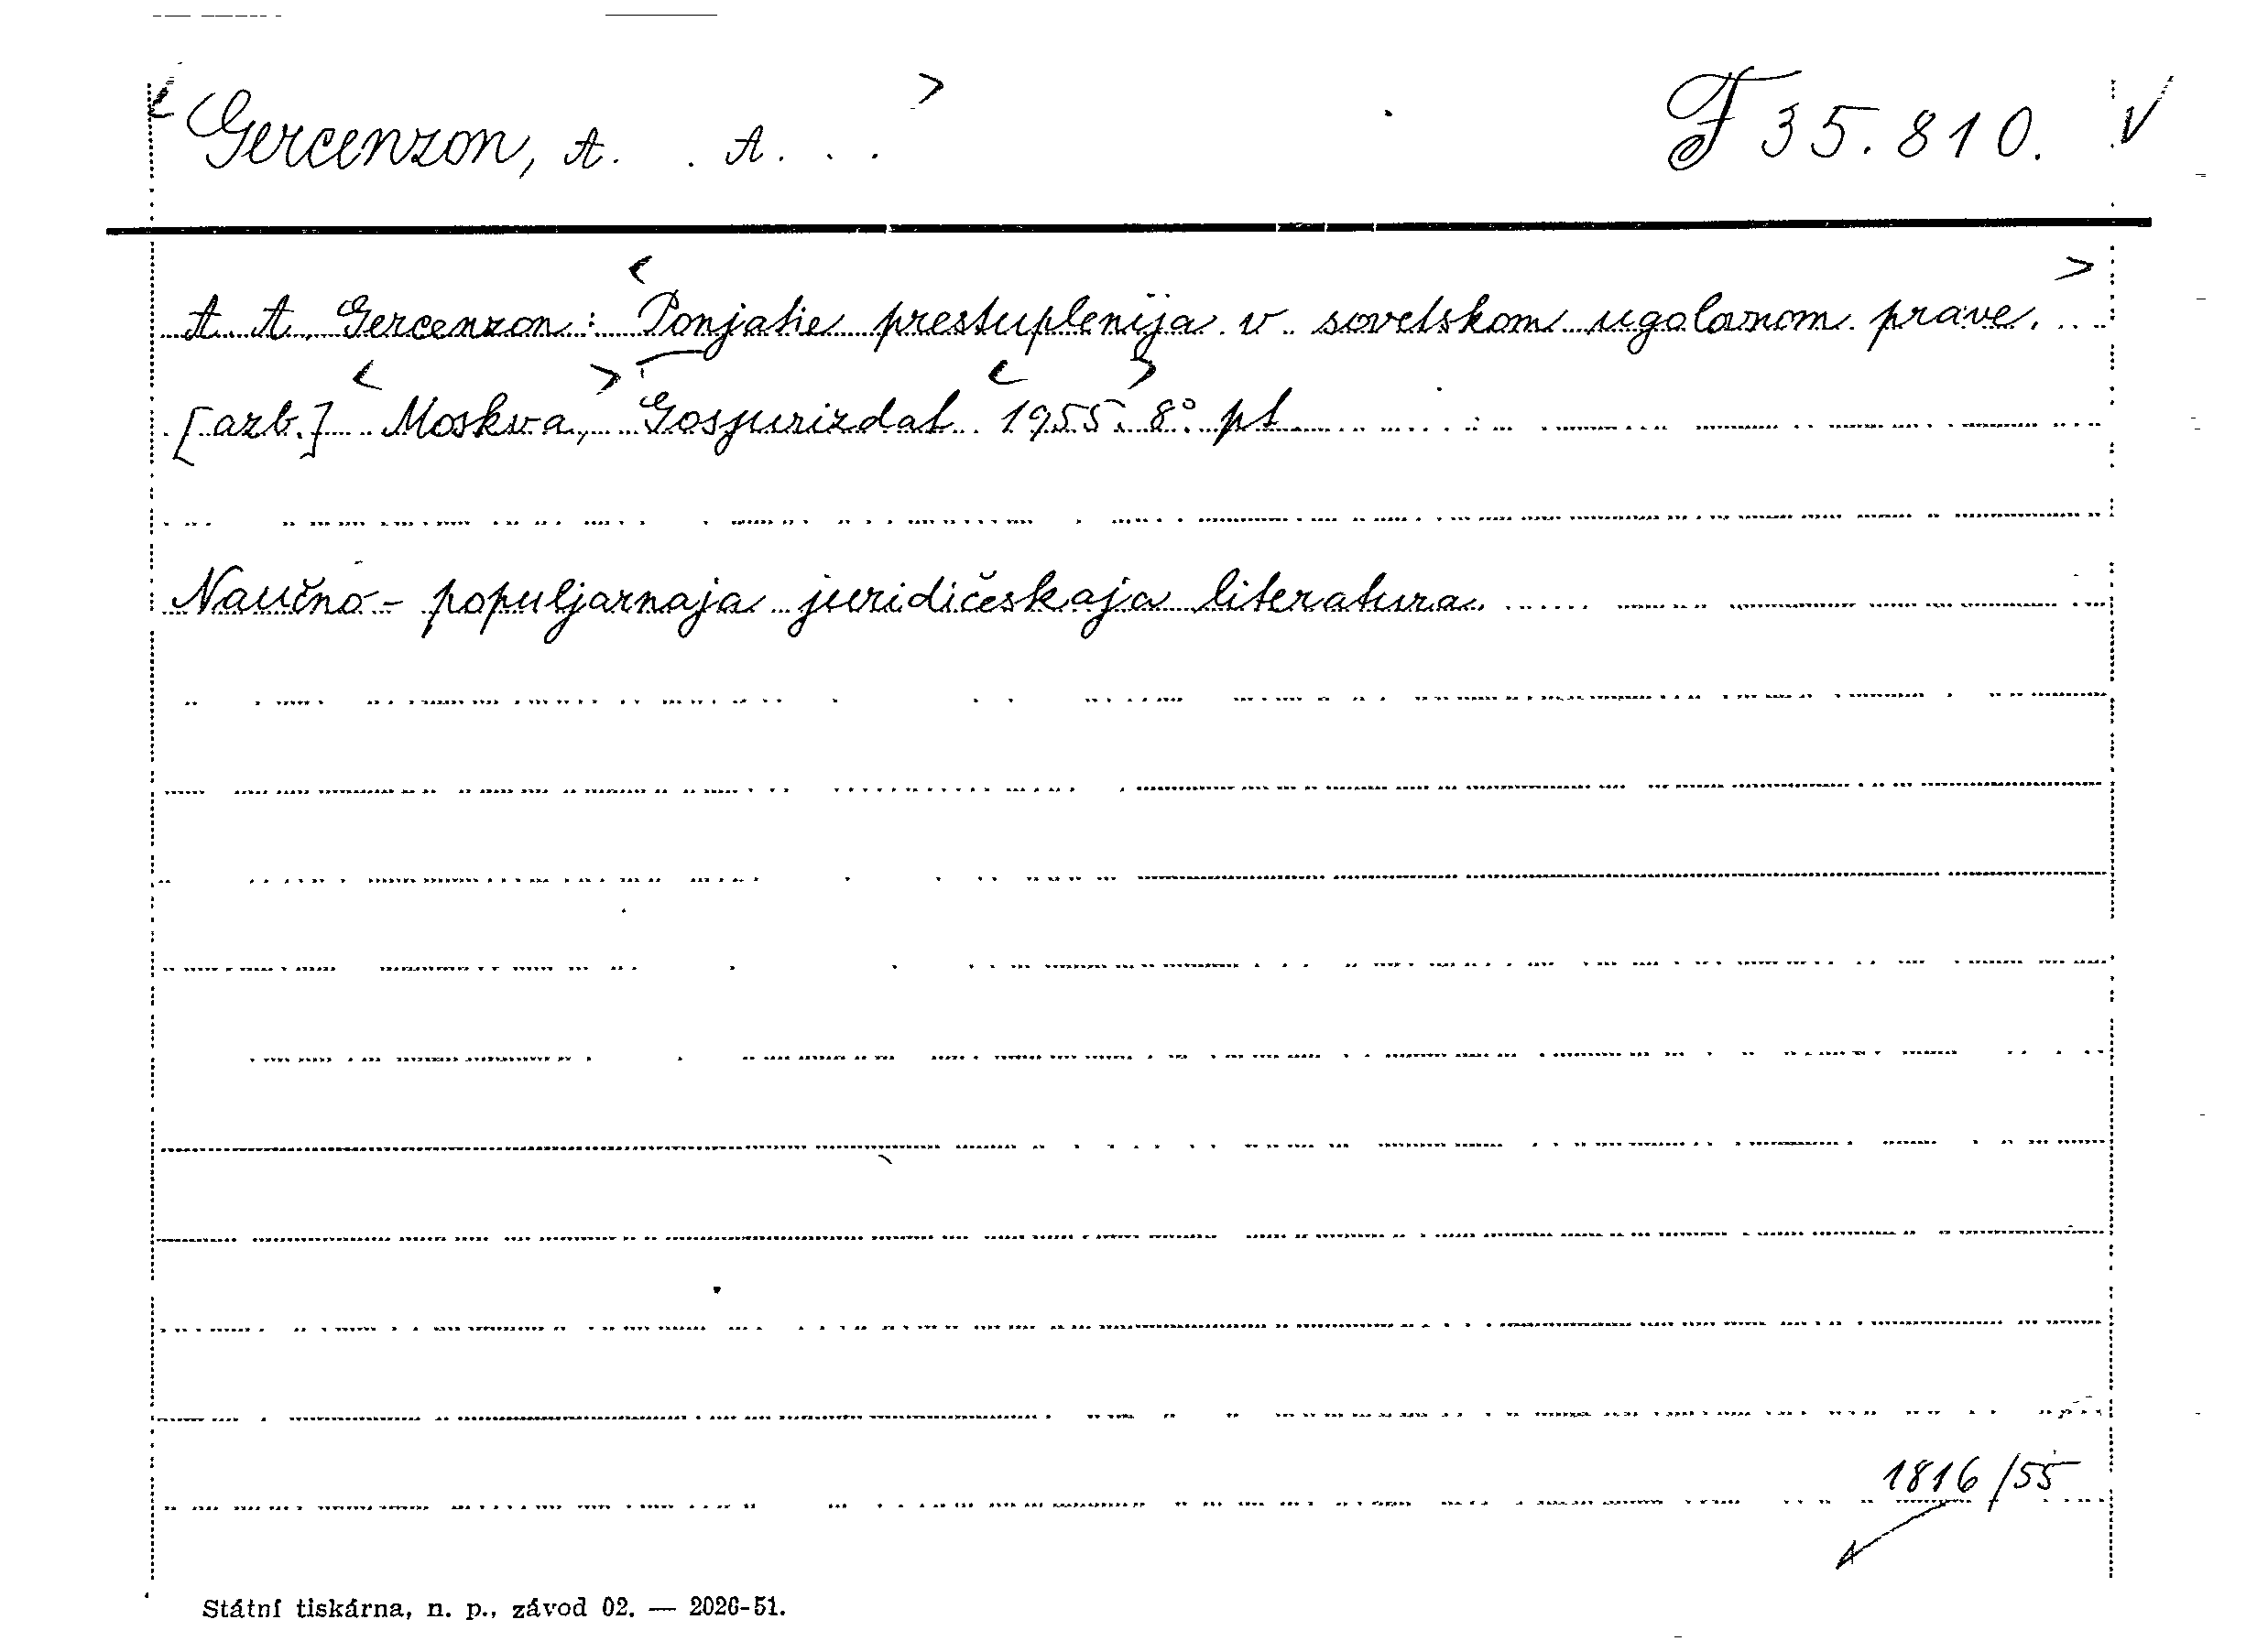 < Gercenzon, A. A. > F 35.810. V
A. A. Gercenzon: < Ponjatie prestuplenija v sovetskom ugolovnom prave. >
[azb.] < Moskva, > Gosjurizdat < 1955. > 8° pt
Naučno - populjarnaja juridičeskaja literatura.
1816/55
Státní tiskárna, n. p., závod 02. — 2026-51.